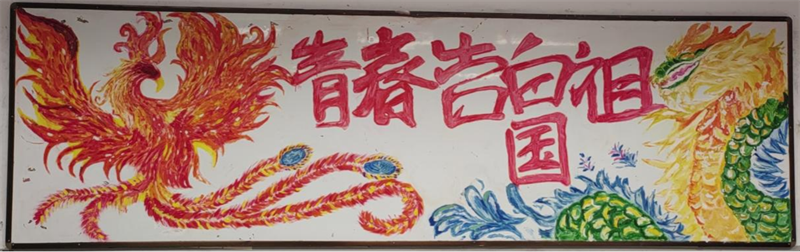 青春告白祖
国